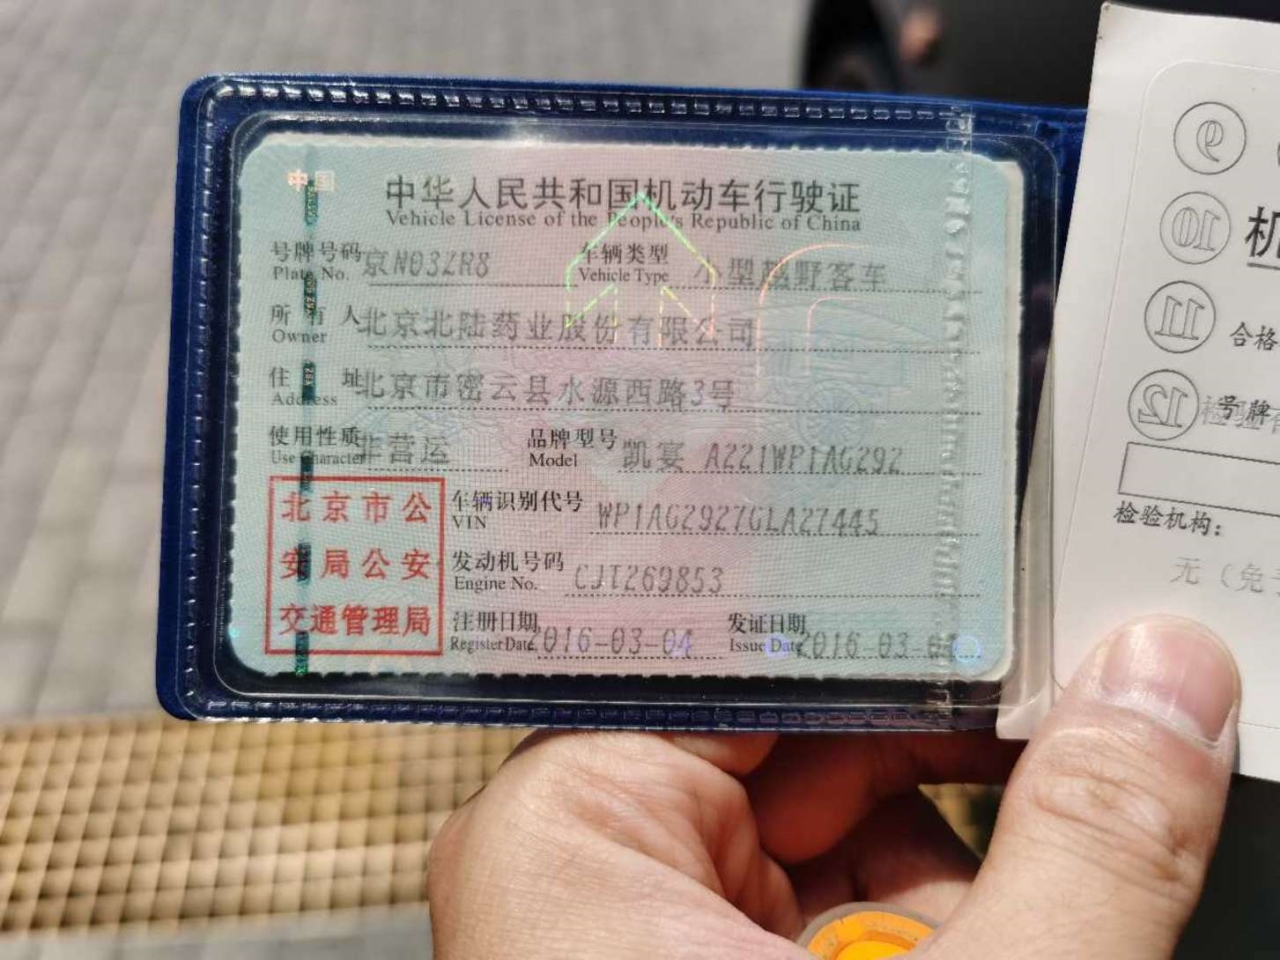 中国
中华人民共和国机动车行驶证
Vehicle License of the People's Republic of China
号牌号码 京N03ZR8 车辆类型 小型越野客车
Plate No. Vehicle Type
所有人 北京北陆药业股份有限公司
Owner
住址 北京市密云县水源西路3号
Address
使用性质 非营运 品牌型号 凯宴 A221WP1AG292
Use Character Model
北京市公
安局公安
交通管理局
车辆识别代号 WP1AG2927GLA27445
VIN
发动机号码 CJT269853
Engine No.
注册日期 2016-03-04 发证日期 2016-03-04
Register Date Issue Date
9
10 机
11 合格
12 号牌
检验机构:
无(免